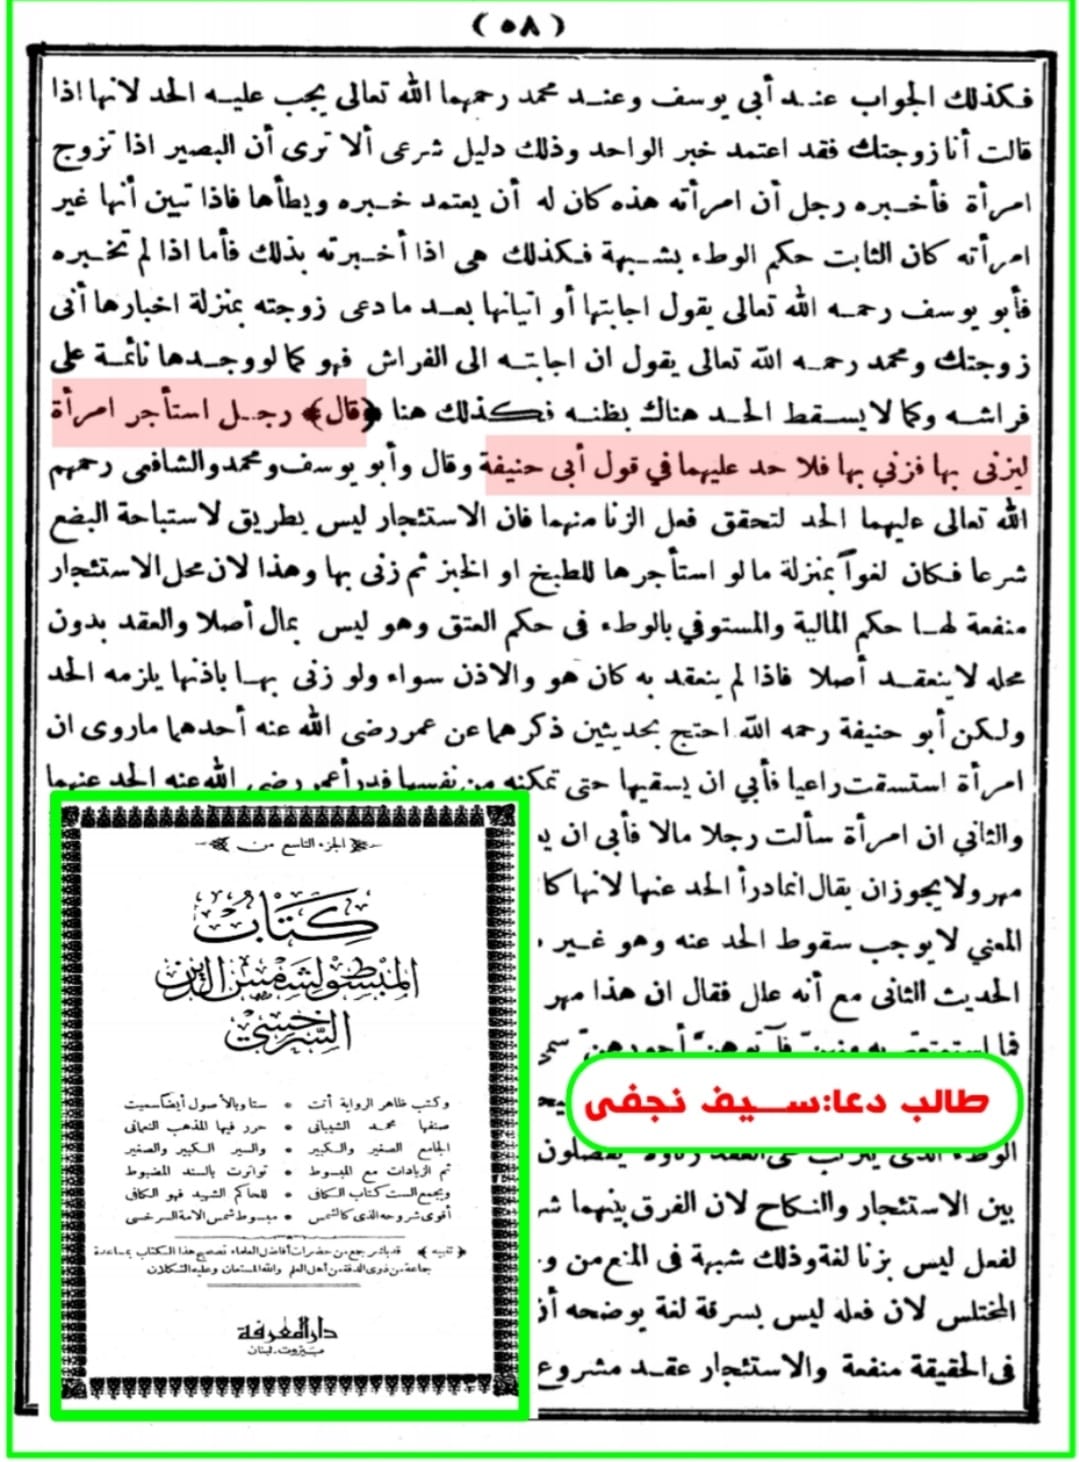 (٥٨)
فكذلك الجواب عند أبي يوسف وعند محمد رحمهما الله تعالى يجب عليه الحد لانها اذا
قالت أنا زوجتك فقد اعتمد خبر الواحد وذلك دليل شرعى ألا ترى أن البصير اذا تزوج
امرأة فأخبره رجل أن امرأته هذه كان له أن يعتمد خبره ويطأها فاذا تبين أنها غير
امرأته كان الثابت حكم الوطء بشبهة فكذلك هي اذا أخبرته بذلك فأما اذا لم تخبره
فأبو يوسف رحمه الله تعالى يقول اجابتها أو اتيانها بعد ما دعى زوجته بمنزلة اخبارها أنى
زوجتك ومحمد رحمه الله تعالى يقول ان اجابته الى الفراش فهو كما لو وجدها نائمة على
فراشه وكما لا يسقط الحد هناك بظنه فكذلك هنا ﴿قال﴾ رجل استأجر امرأة
ليزنى بها فزني بها فلا حد عليهما في قول أبى حنيفة وقال وأبو يوسف ومحمد والشافعى رحمهم
الله تعالى عليهما الحد لتحقق فعل الزنا منهما فان الاستئجار ليس بطريق لاستباحة البضع
شرعا فكان لغواً بمنزلة ما لو استأجرها للطبخ او الخبز ثم زنى بها وهذا لان محل الاستئجار
منفعة لها حكم المالية والمستوفي بالوطء فى حكم العتق وهو ليس بمال أصلا والعقد بدون
محله لا ينعقد أصلا فاذا لم ينعقد به كان هو والاذن سواء ولو زنى بها باذنها يلزمه الحد
ولكن أبو حنيفة رحمه الله احتج بحديثين ذكرهما عن عمر رضى الله عنه أحدهما ماروى ان
امرأة استسقت راعيا فأبي ان يسقيها حتى تمكنه من نفسها فدرأ عمر رضى الله عنه الحد عنهما
والثاني ان امرأة سألت رجلا مالا فأبي ان
مهر ولا يجوز ان يقال انما درأ الحد عنها لانها
المعني لا يوجب سقوط الحد عنه وهو غير
الحديث الثانى مع أنه علل فقال ان هذا مهر
فما استمتعتم به منهن فآتوهن أجورهن سمى
بين الاستئجار والنكاح لان الفرق بينهما
لفعل ليس بزنا لغة وذلك شبهة فى المنع من
المختلس لان فعله ليس بسرقة لغة يوضحه
فى الحقيقة منفعة والاستئجار عقد مشروع
طالب دعا:سيف نجفى
الجزء التاسع من
كتاب
المبسوط لشمس الدين
السرخسي
وكتب ظاهر الرواية أتت • ستا وبالأصول أيضا سميت
صنفها محمد الشيبانى • حرر فيها المذهب النعمانى
الجامع الصغير والكبير • والسير الكبير والصغير
ثم الزيادات مع المبسوط • تواترت بالسند المضبوط
ويجمع الست كتاب الكافى • للحاكم الشهيد فهو الكافى
أقوى شروحه الذى كالشمس • مبسوط شمس الامة السرخسى
﴿تنبيه﴾ قد باشر جمع من حضرات أفاضل العلماء تصحيح هذا الكتاب بمساعدة
جماعة من ذوى الدقة من أهل العلم والله المستعان وعليه التكلان
دار المعرفة
بيروت.لبنان